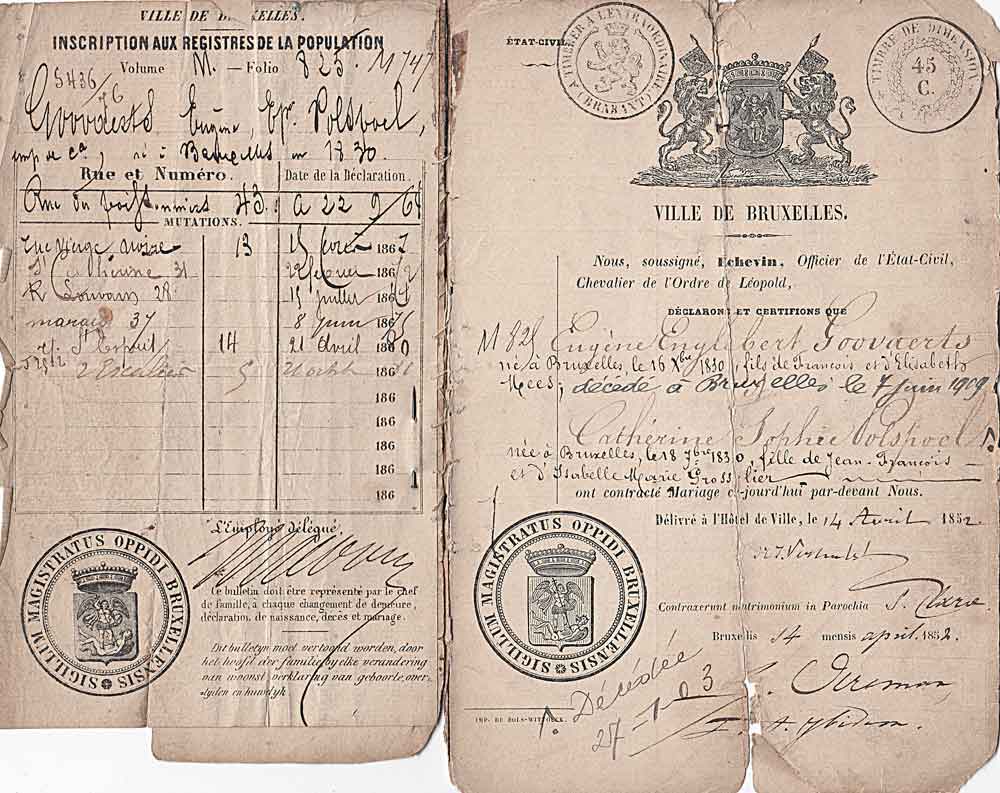 VILLE DE BRUXELLES.
INSCRIPTION AUX REGISTRES DE LA POPULATION
Volume M. — Folio 825. 11747
5436/76
Goovaerts Eugène, Ep. Polspoel,
emp de ca, né à Bruxelles en 1830.
Rue et Numéro. Date de la Déclaration.
Rue du 43. a 22 9/6
MUTATIONS.
rue Vierge Noire 13 15 186
Catherine 31 22 fevrier 186
R Louvain 28 15 juillet 186
marais 37 8 Juin 186
St Esprit 14 21 Avril 186
5 186
186
186
186
186
L'Employé délégué,
Ce bulletin doit être représenté par le chef
de famille, à chaque changement de demeure,
déclaration de naissance, décès et mariage.
Dit bulletyn moet vertoond worden, door
het hoofd der familie by elke verandering
van woonst verklaring van geboorte, over-
lyden en huwelyk
SIGILLUM MAGISTRATUS OPPIDI BRUXELLENSIS
ÉTAT-CIVIL
A TIMBRER A L'EXTRAORDINAIRE
(BRABANT)
TIMBRE DE DIMENSION
45
C.
VILLE DE BRUXELLES.
Nous, soussigné, Echevin, Officier de l'État-Civil,
Chevalier de l'Ordre de Léopold,
DÉCLARONS ET CERTIFIONS QUE
M 825 Eugène Englebert Goovaerts
né à Bruxelles, le 16 Xbre 1830, fils de François et d'Elisabeth
Mees; décédé à Bruxelles le 7 juin 1909
Cathérine Sophie Polspoel
née à Bruxelles, le 18 7bre 1830, fille de Jean-François
et d'Isabelle Marie
ont contracté Mariage ce jourd'hui par-devant Nous.
Délivré à l'Hôtel de Ville, le 14 Avril 1852
Contraxerunt matrimonium in Parochia S. Clarae
Bruxellis 14 mensis april. 1852.
Décédée
27-1-03
IMP. DE BOLS-WITTOUCK.
SIGILLUM MAGISTRATUS OPPIDI BRUXELLENSIS